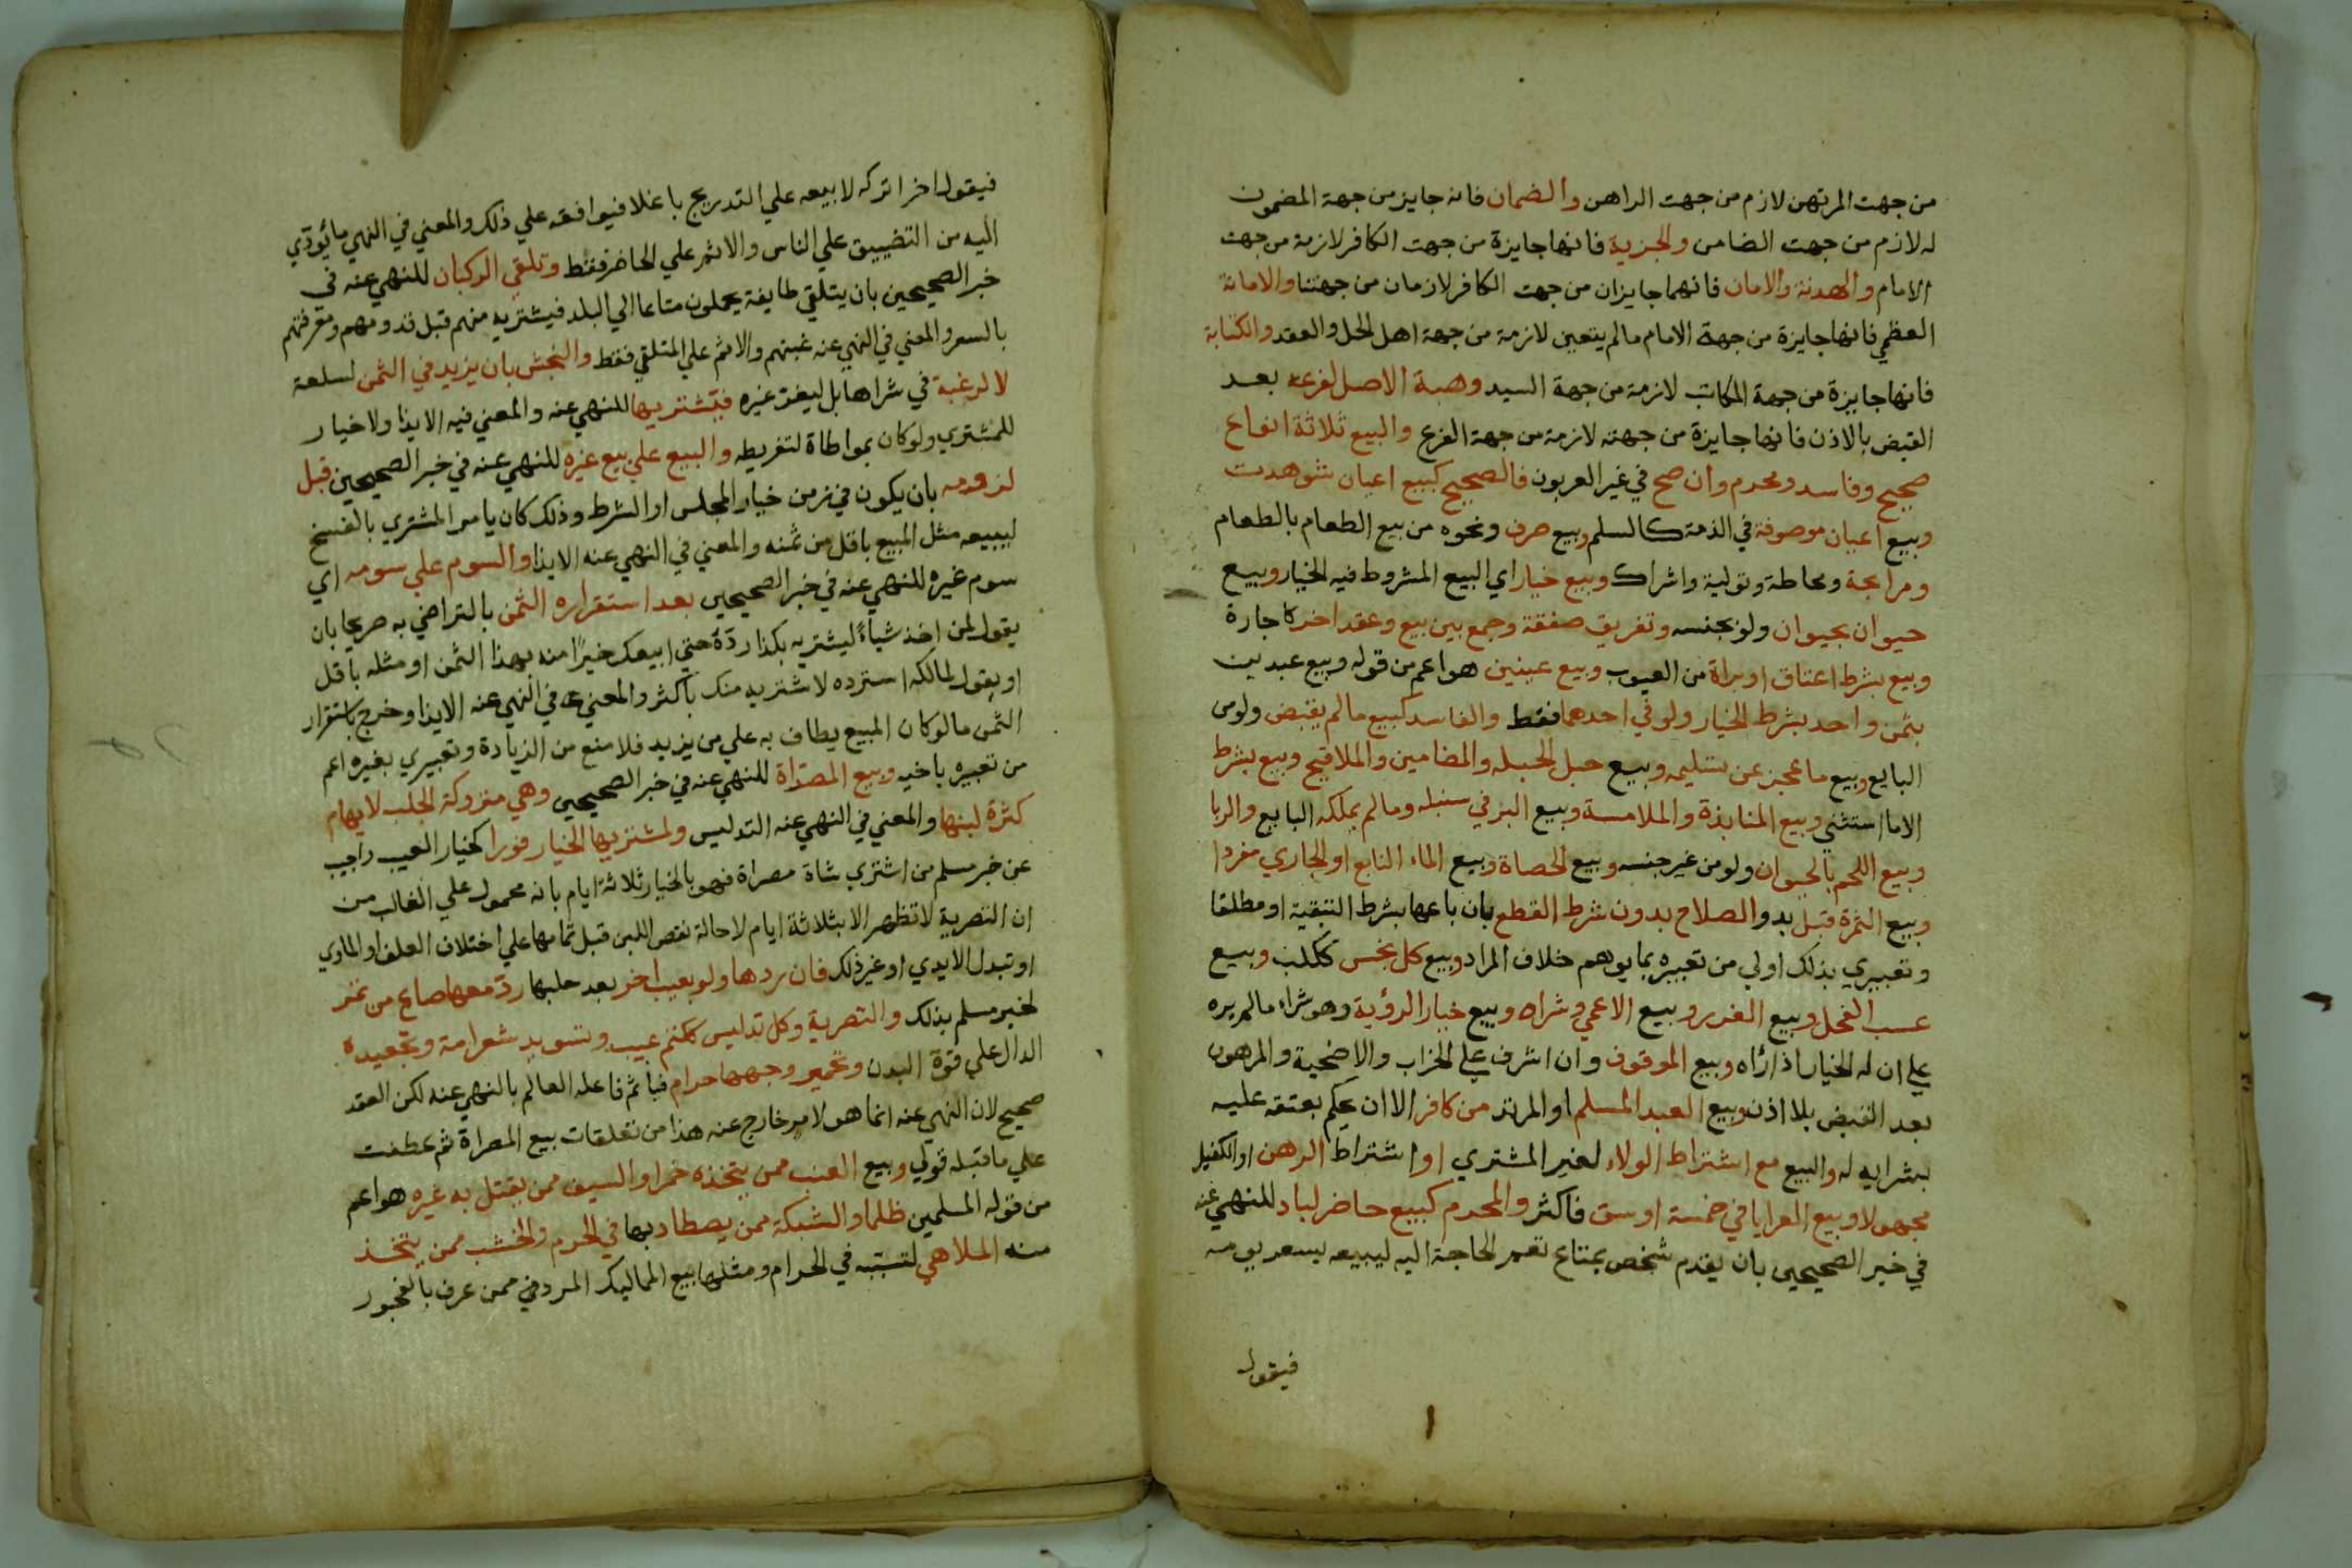 من جهت المرتهن لازم من جهت الراهن والضمان فانه جايز من جهة المضمون
له لازم من جهت الضامن والجزية فانها جايزة من جهت الكافر لازمة من جهت
الامام والهدنة والامان فانهما جايزان من جهت الكافر لازمان من جهتنا والامانة
العظمي فانها جايزة من جهة الامام مالم يتعين لازمة من جهة اهل الحل والعقد والكتابة
فانها جايزة من جهة المكاتب لازمة من جهة السيد وهبة الاصل لفرعه بعد
القبض بالاذن فانها جايزة من جهته لازمة من جهة الفرع والبيع ثلاثة انواع
صحيح وفاسد ومحرم وان صح في غير العربون فالصحيح كبيع اعيان شوهدت
وبيع اعيان موصوفة في الذمة كالسلم وبيع صرف ونحوه من بيع الطعام بالطعام
ومرابحة ومحاطة وتولية واشراك وبيع خيار اي البيع المشروط فيه الخيار وبيع
حيوان بحيوان ولو بجنسه وتفريق صفقة وجمع بين بيع وعقد اخر كاجارة
وبيع بشرط اعتاق او براة من العيوب وبيع عينين هو اعم من قوله وبيع عبدين
بثمن واحد بشرط الخيار ولو في احدهما فقط والفاسد كبيع مالم يقبض ولو من
البايع وبيع ما عجز عن تسليمه وبيع حبل الحبله والمضامين والملاقيح وبيع بشرط
الا ما استثني وبيع المنابذة والملامسة وبيع البر في سنبله ومالم يملكه البايع والربا
وبيع اللحم بالحيوان ولو من غير جنسه وبيع الحصاة وبيع الماء النابع او الجاري مفردا
وبيع الثمرة قبل بدو الصلاح بدون شرط القطع بان باعها بشرط التبقية او مطلقا
وتعبيري بذلك اولي من تعبيره بما يوهم خلاف المراد وبيع كل نجس ككلب وبيع
عسب الفحل وبيع الغرر وبيع الاعمي وشراه وبيع خيار الرؤية وهو شراء مالم يره
علي ان له الخيار اذا رٱه وبيع الموقوف وان اشرف علي الخراب والاضحية والمرهون
بعد القبض بلا اذن وبيع العبد المسلم او المرتد من كافر الا ان يحكم بعتقه عليه
بشرايه له والبيع مع اشتراط الولاء لغير المشتري او اشتراط الرهن او الكفيل
مجهولا وبيع العرايا في خمسة اوسق فاكثر والمحرم كبيع حاضر لباد للنهي عنه
في خبر الصحيحين بان يقدم شخص بمتاع تعم الحاجة اليه ليبيعه بسعر يومه
فيقول
فيقول اخر اتركه لابيعه علي التدريج باغلا فيوافقه علي ذلك والمعني في النهي ما يُودّي
اليه من التضييق علي الناس والاثم علي الحاضر فقط وتلقي الركبان للنهي عنه في
خبر الصحيحين بان يتلقي طايفة يحملون متاعا الي البلد فيشتريه منهم قبل قدومهم ومعرفتهم
بالسعر والمعني في النهي عنه غبنهم والاثم علي المتلقي فقط والنجش بان يزيد في الثمن لسلعة
لا لرغبة في شراها بل ليغر غيره فيشتريها للنهي عنه والمعني فيه الايذا ولا خيار
للمشتري ولو كان بمواطاة لتفريطه والبيع علي بيع غيره للنهي عنه في خبر الصحيحين قبل
لزومه بان يكون في زمن خيار المجلس او الشرط وذلك كان يامر المشتري بالفسخ
ليبيعه مثل المبيع باقل من ثمنه والمعني في النهي عنه الايذا والسوم علي سومه اي
سوم غيره للنهي عنه في خبر الصحيحين بعد استقراره الثمن بالتراضي به صريحا بان
يقول لمن اخذ شياءً ليشتريه بكذا ردّهُ حتي ابيعك خيرًا منه بهذا الثمن او مثله باقل
او يقول لمالكه استرده لاشتريه منك باكثر والمعني في النهي عنه الايذا وخرج باستقرار
الثمن مالو كان المبيع يطاف به علي من يزيد فلا منع من الزيادة وتعبيري بغيره اعم
من تعبيره باخيه وبيع المصرّاة للنهي عنه في خبر الصحيحين وهي متروكة الحلب لايهام
كثرة لبنها والمعني في النهي عنه التدليس ولمشتريها الخيار فورا كخيار العيب واجيب
عن خبر مسلم من اشتري شاة مصراة فهو بالخيار ثلاثة ايام بانه محمول علي الغالب من
ان التصرية لا تظهر الا بثلاثة ايام لاحالة نقص اللبن قبل تمامها علي اختلاف العلف او الماوي
او تبدل الايدي او غير ذلك فان ردها ولو بعيب اخر بعد حلبها ردّ معها صاع من تمر
لخبر مسلم بذلك والتصرية وكل تدليس ككتم عيب وتسويد شعر امة وتجعيده
الدال علي قوة البدن وتحمير وجهها حرام فياثم فاعله العالم بالنهي عنه لكن العقد
صحيح لان النهي عنه انما هو لامر خارج عنه هذا من تعلقات بيع المصراة ثم عطفت
علي ما قبله قولي وبيع العنب ممن يتخذه خمرا والسيف ممن يقتل به غيره هو اعم
من قوله المسلمين ظلما والشبكة ممن يصطاد بها في الحرم والخشب ممن يتخذ
منه الملاهي لتسببه في الحرام ومثلها بيع المماليك المرد في ممن عرف بالفجور